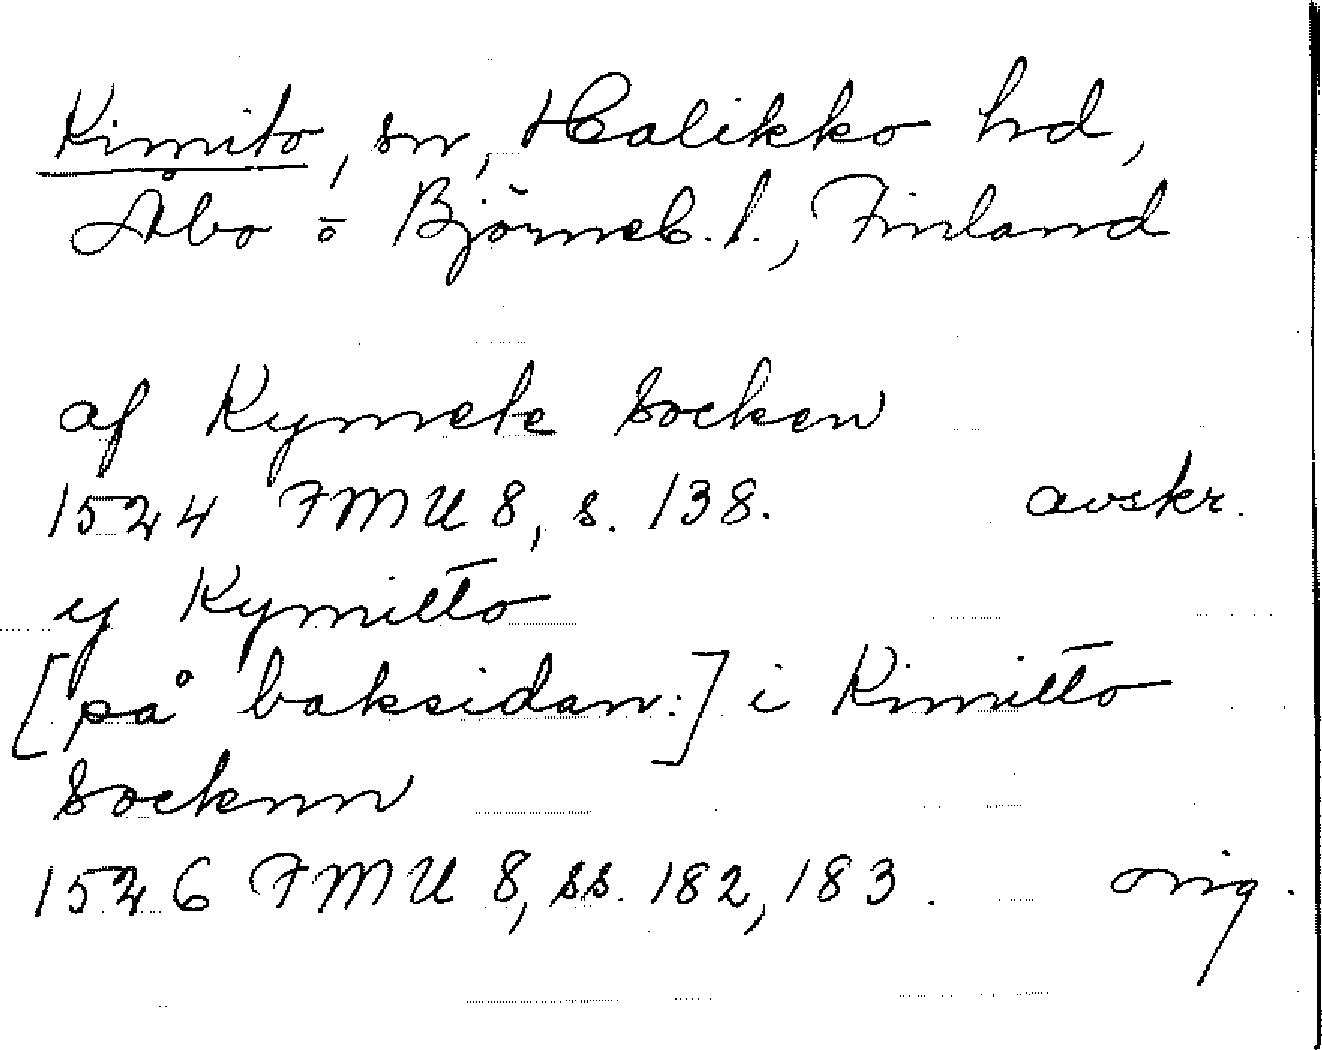 Kimito, sn, Halikko hd,
Åbo o Björneb. l., Finland
af Kymele Socken
1524 FMU 8, s. 138. avskr.
y Kymitto
[på baksidan:] i Kimitto
Socknn
1526 FMU 8, ss. 182, 183. orig.